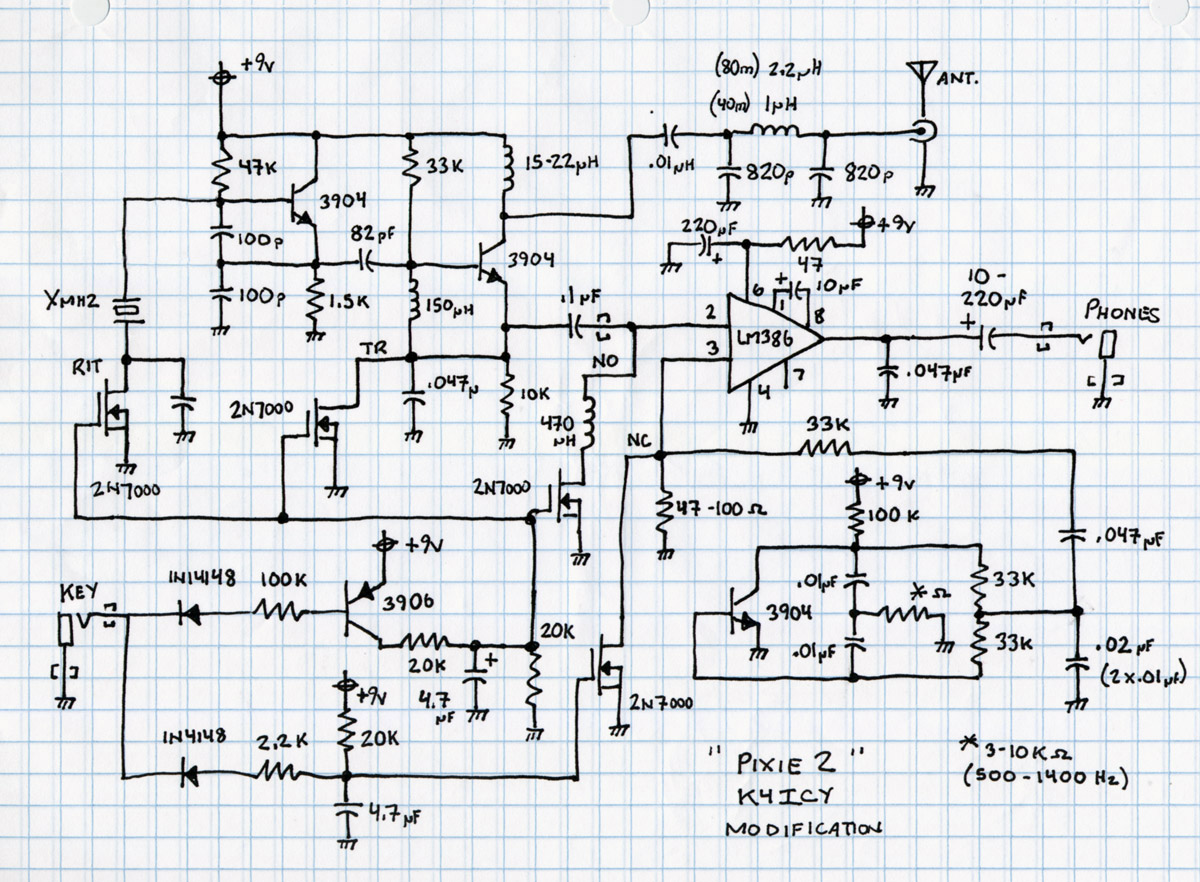 +9v
(80m) 2.2µH
(40m) 1µH
ANT.
47K
33K
15-22µH
.01µH
820p
820p
3904
82pF
3904
220µF
+
+9v
47
100p
XMHz
100p
1.5K
150µH
.1µF
6
+
1
10µF
8
2
LM386
3
7
4
10-
220µF
+
PHONES
.047µF
RIT
TR
NO
.047µ
10K
2N7000
470
µH
33K
NC
2N7000
2N7000
47-100Ω
+9v
100K
.047µF
+9v
KEY
1N14148
100K
3906
.01µF
* Ω
33K
3904
20K
20K
+
4.7
µF
.01µF
33K
.02µF
(2x.01µF)
+9v
2N7000
1N4148
2.2K
20K
4.7µF
"PIXIE 2"
K4ICY
MODIFICATION
* 3-10KΩ
(500-1400 Hz)